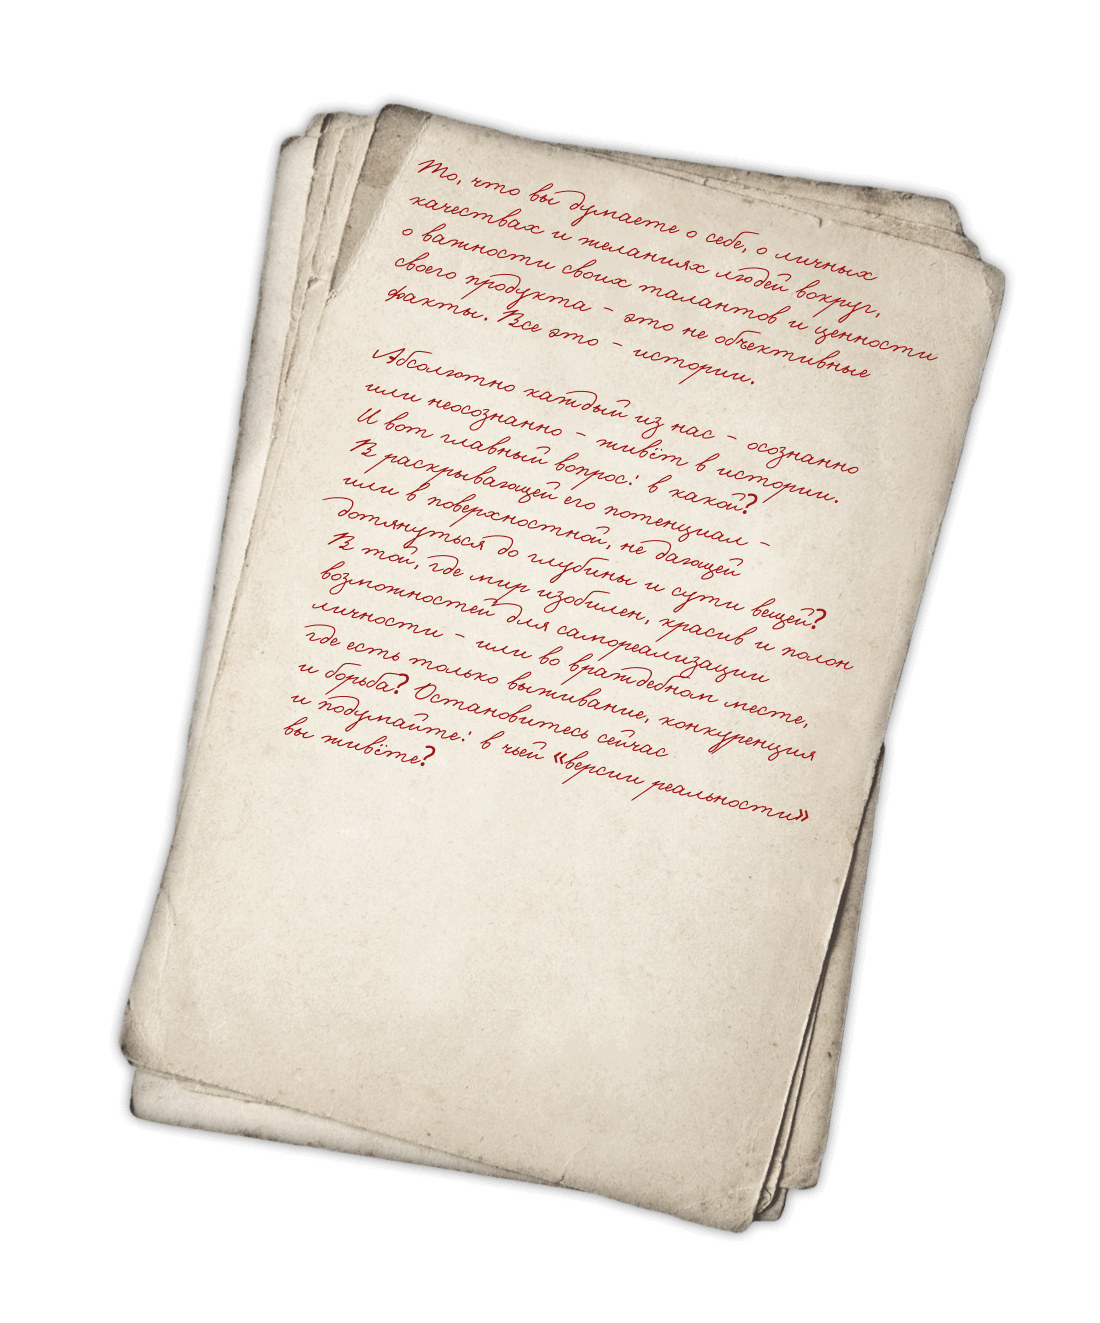 То, что вы думаете о себе, о личных
качествах и желаниях людей вокруг,
о важности своих талантов и ценности
своего продукта – это не объективные
факты. Все это – истории.
Абсолютно каждый из нас – осознанно
или неосознанно – живёт в истории.
И вот главный вопрос: в какой?
В раскрывающей его потенциал –
или в поверхностной, не дающей
дотянуться до глубины и сути вещей?
В той, где мир изобилен, красив и полон
возможностей для самореализации
личности – или во враждебном месте,
где есть только выживание, конкуренция
и борьба? Остановитесь сейчас
и подумайте: в чьей «версии реальности»
вы живёте?